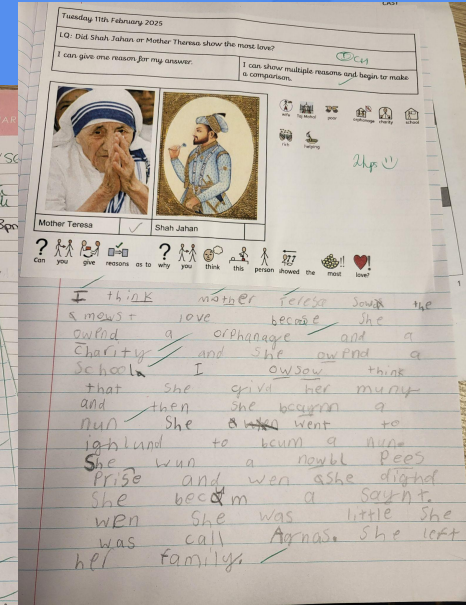 Tuesday 11th February 2025
I.Q: Did Shah Jahan or Mother Theresa show the most love?
I can give one reason for my answer.
I can show multiple reasons and begin to make
a comparison.
wife Taj Mahal poor orphanage charity school
rich helping
2hps
Mother Teresa
Shah Jahan
Can you give reasons as to why you think this person showed the most love?
I think mother Teresa the
mowst love becase She
owend a orphanage and a
Charity and she owend a
School. I owsow think
that She givd her muny
and then She
nun She went to
ighlund to bcum a Nune
She wun a nowbl Pees
Prise and wen she dighd
She becam a Saynt.
wen She was little She
was call Agnas. She left
her family.